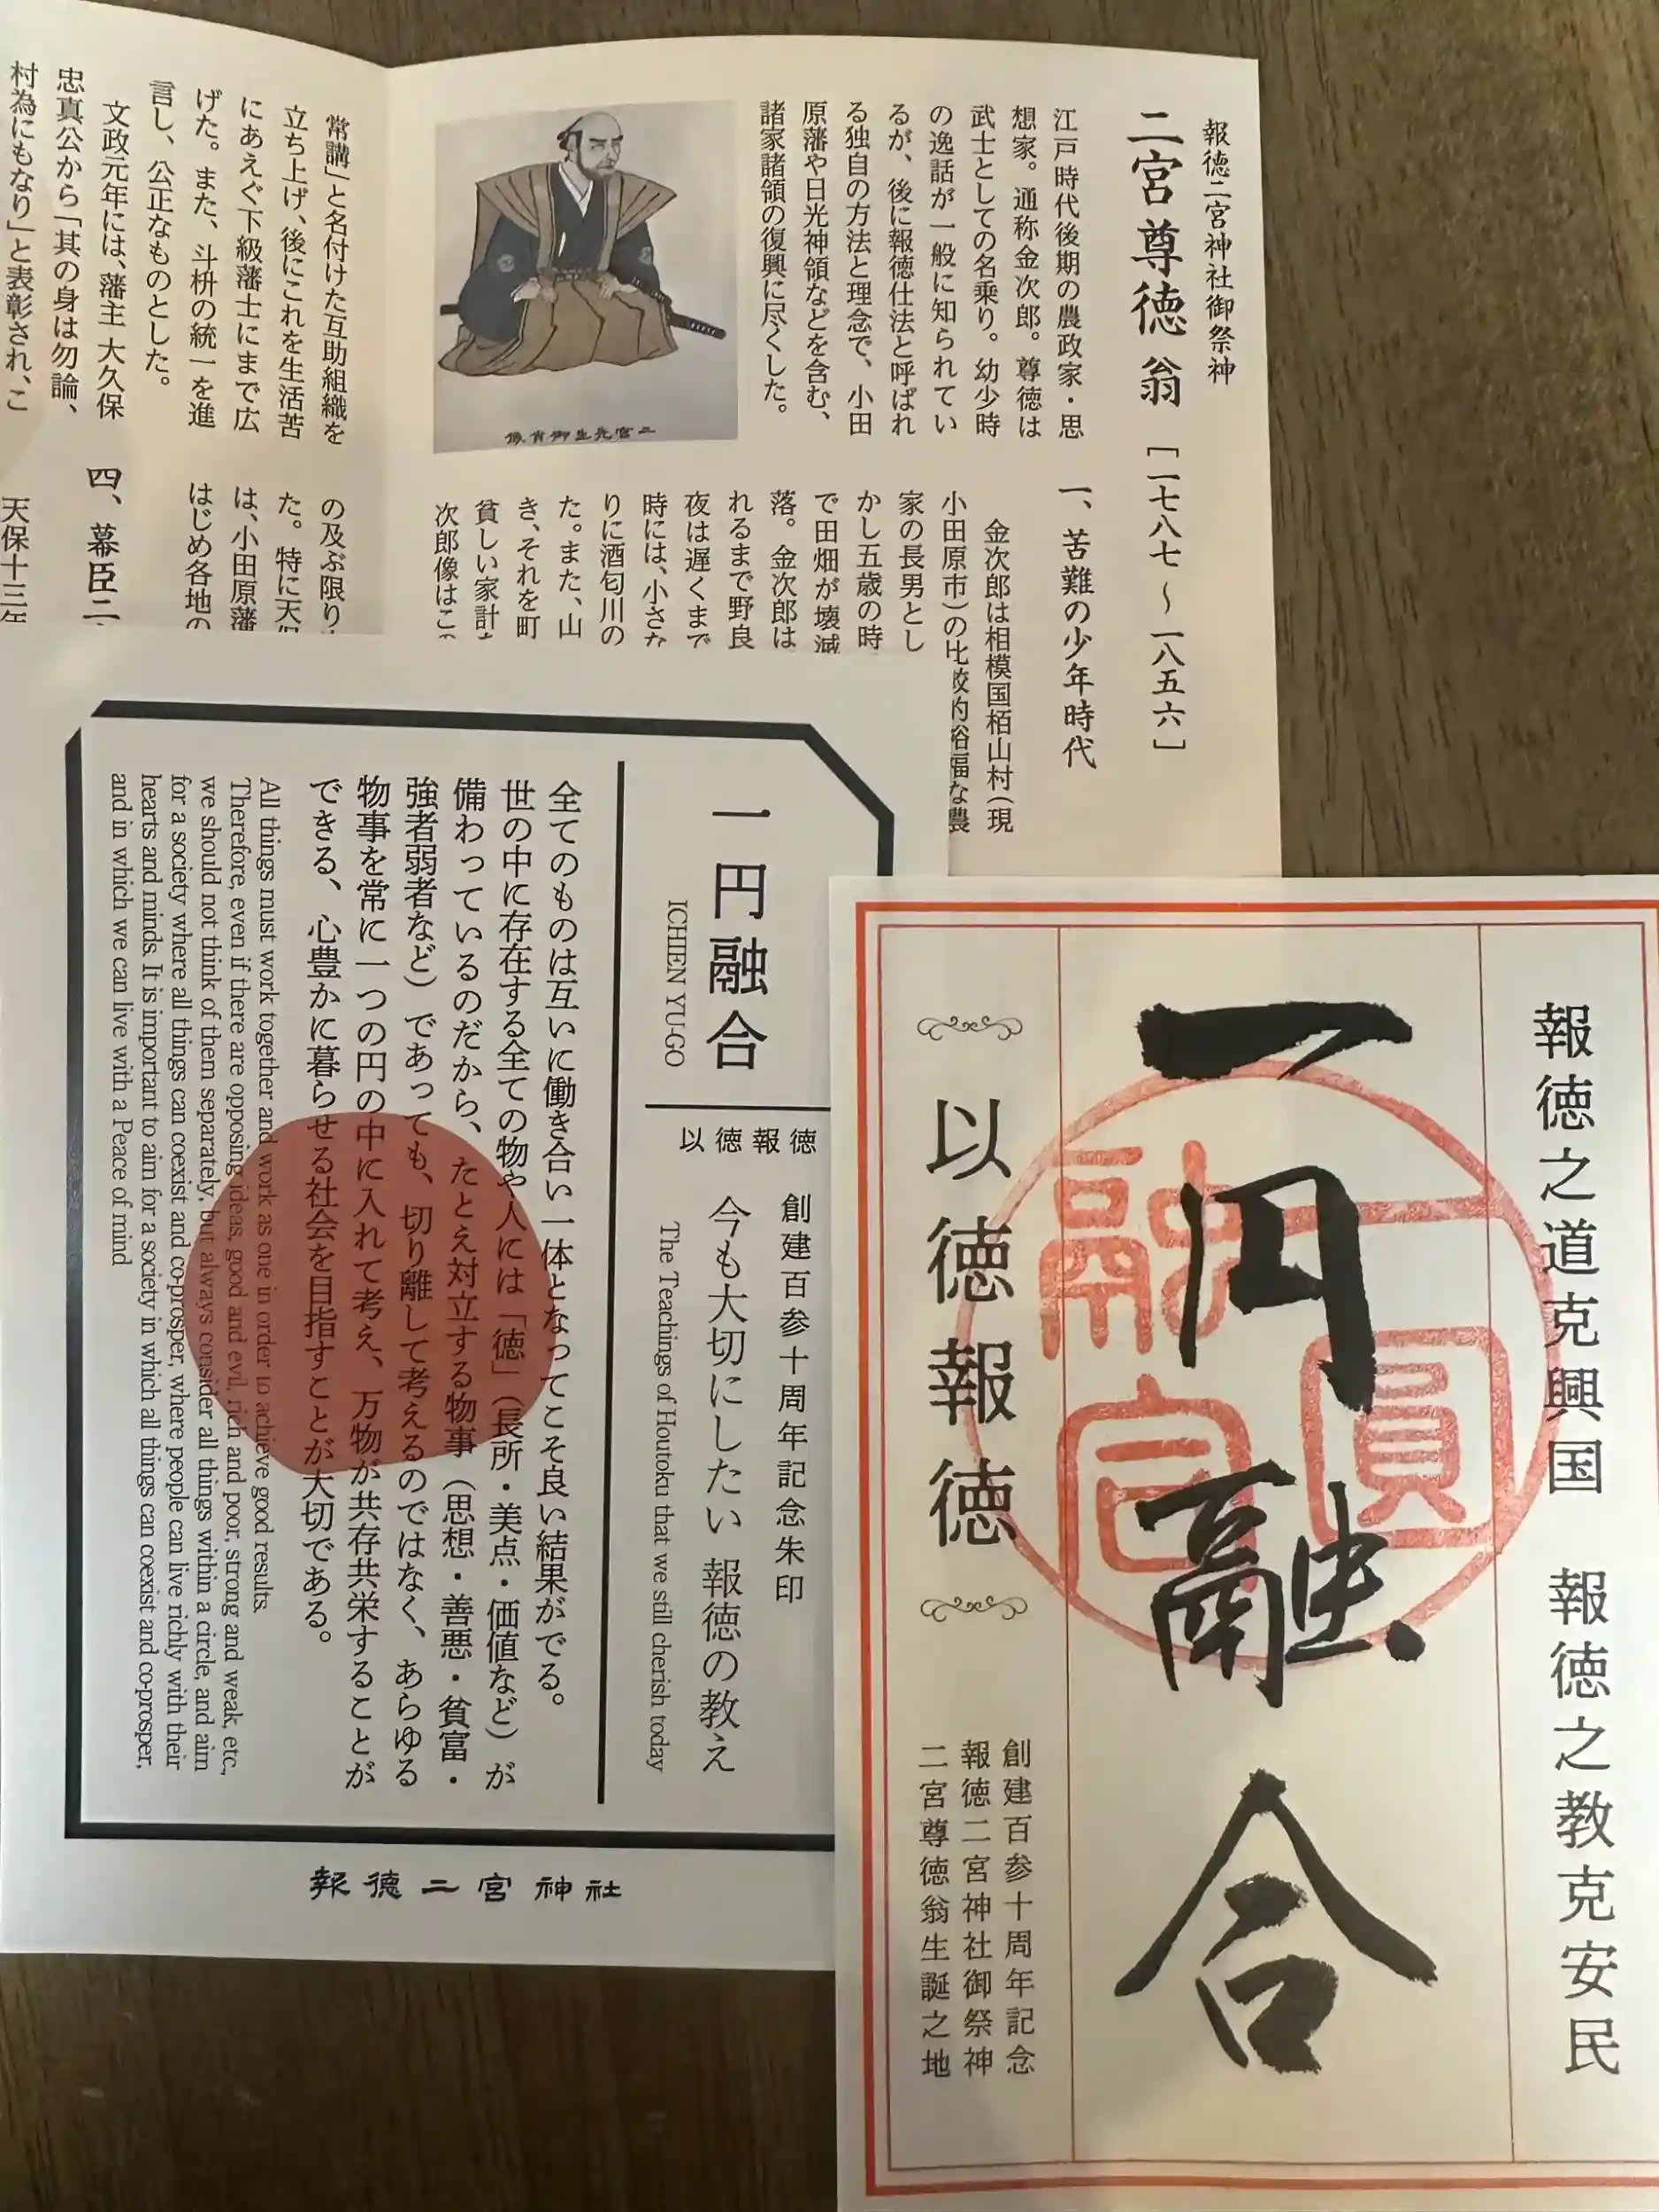 報徳二宮神社御祭神
二宮尊徳翁［一七八七～一八五六］
江戸時代後期の農政家・思
想家。通称金次郎。尊徳は
武士としての名乗り。幼少時
の逸話が一般に知られてい
るが、後に報徳仕法と呼ばれ
る独自の方法と理念で、小田
原藩や日光神領などを含む、
諸家諸領の復興に尽くした。
二宮先生御肖像
一、苦難の少年時代
金次郎は相模国栢山村（現
小田原市）の比較的裕福な農
家の長男とし
かし五歳の時
で田畑が壊滅
落。金次郎は
れるまで野良
夜は遅くまで
時には、小さな
りに酒匂川の
た。また、山
き、それを町
貧しい家計を
次郎像はこの
常講」と名付けた互助組織を
立ち上げ、後にこれを生活苦
にあえぐ下級藩士にまで広
げた。また、斗枡の統一を進
言し、公正なものとした。
文政元年には、藩主 大久保
忠真公から「其の身は勿論、
村為にもなり」と表彰され、こ
の及ぶ限り
た。特に天保
は、小田原藩
はじめ各地の
四、幕臣二
天保十三年
一円融合
ICHIEN YU-GO
以徳報徳
創建百参十周年記念朱印
今も大切にしたい 報徳の教え
The Teachings of Houtoku that we still cherish today
全てのものは互いに働き合い一体となってこそ良い結果がでる。
世の中に存在する全ての物や人には「徳」（長所・美点・価値など）が
備わっているのだから、たとえ対立する物事（思想・善悪・貧富・
強者弱者など）であっても、切り離して考えるのではなく、あらゆる
物事を常に一つの円の中に入れて考え、万物が共存共栄することが
できる、心豊かに暮らせる社会を目指すことが大切である。
All things must work together and work as one in order to achieve good results.
Therefore, even if there are opposing ideas, good and evil, rich and poor, strong and weak, etc.,
we should not think of them separately, but always consider all things within a circle, and aim
for a society where all things can coexist and co-prosper, where people can live richly with their
hearts and minds. It is important to aim for a society in which all things can coexist and co-prosper,
and in which we can live with a Peace of mind
報徳二宮神社
報徳之道克興国 報徳之教克安民
一円融合
一圓融合
以徳報徳
創建百参十周年記念
報徳二宮神社御祭神
二宮尊徳翁生誕之地